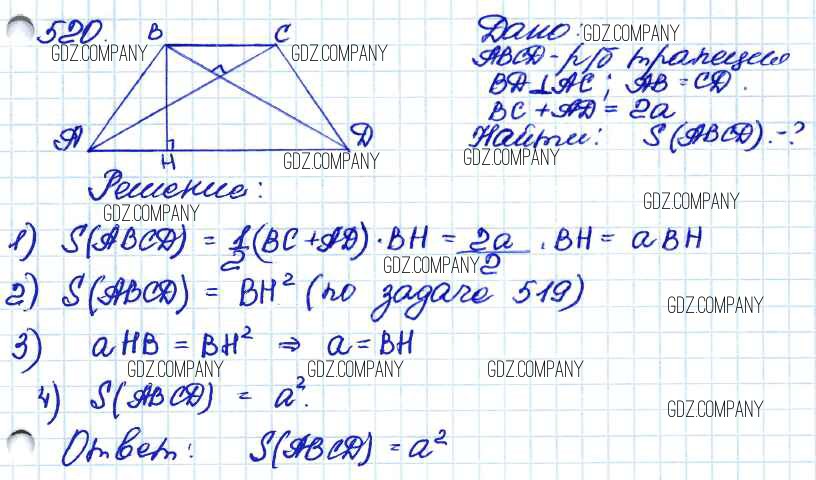 520.
B C
A H D
Дано:
ABCD - р/б трапеция
BD⊥AC; AB = CD.
BC + AD = 2a
Найти: S(ABCD).-?
Решение:
1) S(ABCD) = 1/2(BC+AD)·BH = 2a/2 · BH = a BH
2) S(ABCD) = BH² (по задаче 519)
3) a HB = BH² ⇒ a = BH
4) S(ABCD) = a².
Ответ: S(ABCD) = a²
GDZ.COMPANY
GDZ.COMPANY
GDZ.COMPANY
GDZ.COMPANY
GDZ.COMPANY
GDZ.COMPANY
GDZ.COMPANY
GDZ.COMPANY
GDZ.COMPANY
GDZ.COMPANY
GDZ.COMPANY
GDZ.COMPANY
GDZ.COMPANY
GDZ.COMPANY